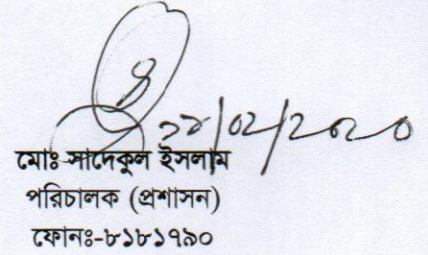 /০২/২০২০
মোঃ সাদেকুল ইসলাম
পরিচালক (প্রশাসন)
ফোনঃ-৮১৮১৭৯০